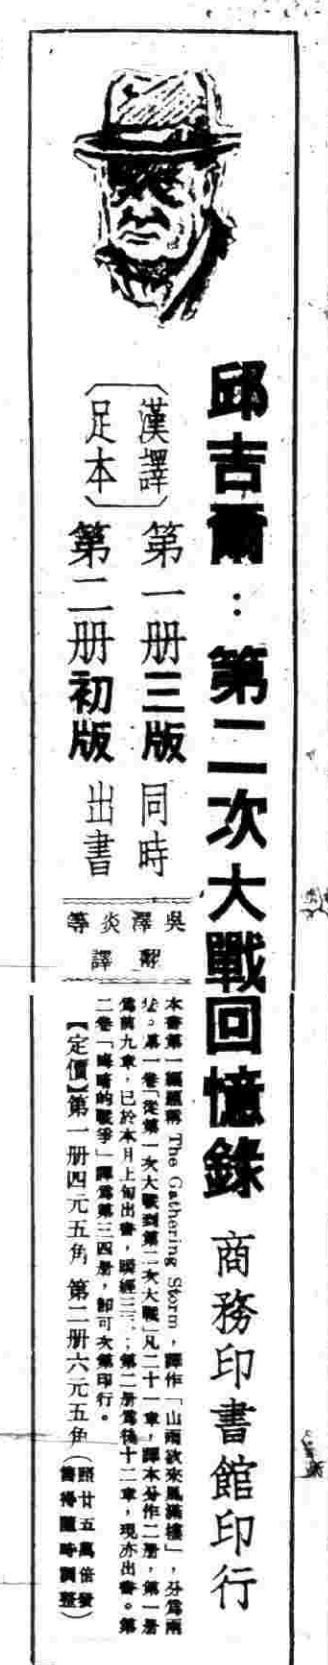 邱吉爾：第二次大戰回憶錄 商務印書館印行
〔漢譯足本〕
第一册三版
第二册初版
同時出書
吳澤炎等譯
本書第一編題稱 The Gathering Storm，譯作「山雨欲來風滿樓」，分爲兩
卷。第一卷「從第一次大戰到第二次大戰」凡二十一章，譯本分作二册，第一册
爲前九章，已於本月上旬出書，第二册爲後十二章，現亦出書。第
二卷「晦暗的戰爭」譯爲第三四册，卽可次第印行。
【定價】第一册四元五角 第二册六元五角（照廿五萬倍發售得隨時調整）